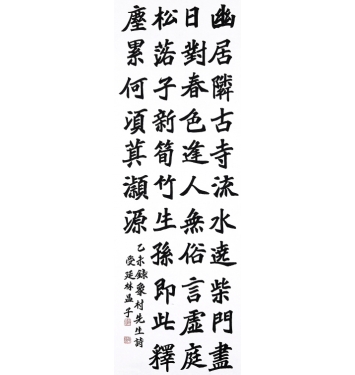 幽居隣古寺流水遶柴門盡
日對春色逢人無俗言虛庭
松落子新筍竹生孫即此釋
塵累何須箕潁源
乙未錄象村先生詩
受延林孟子